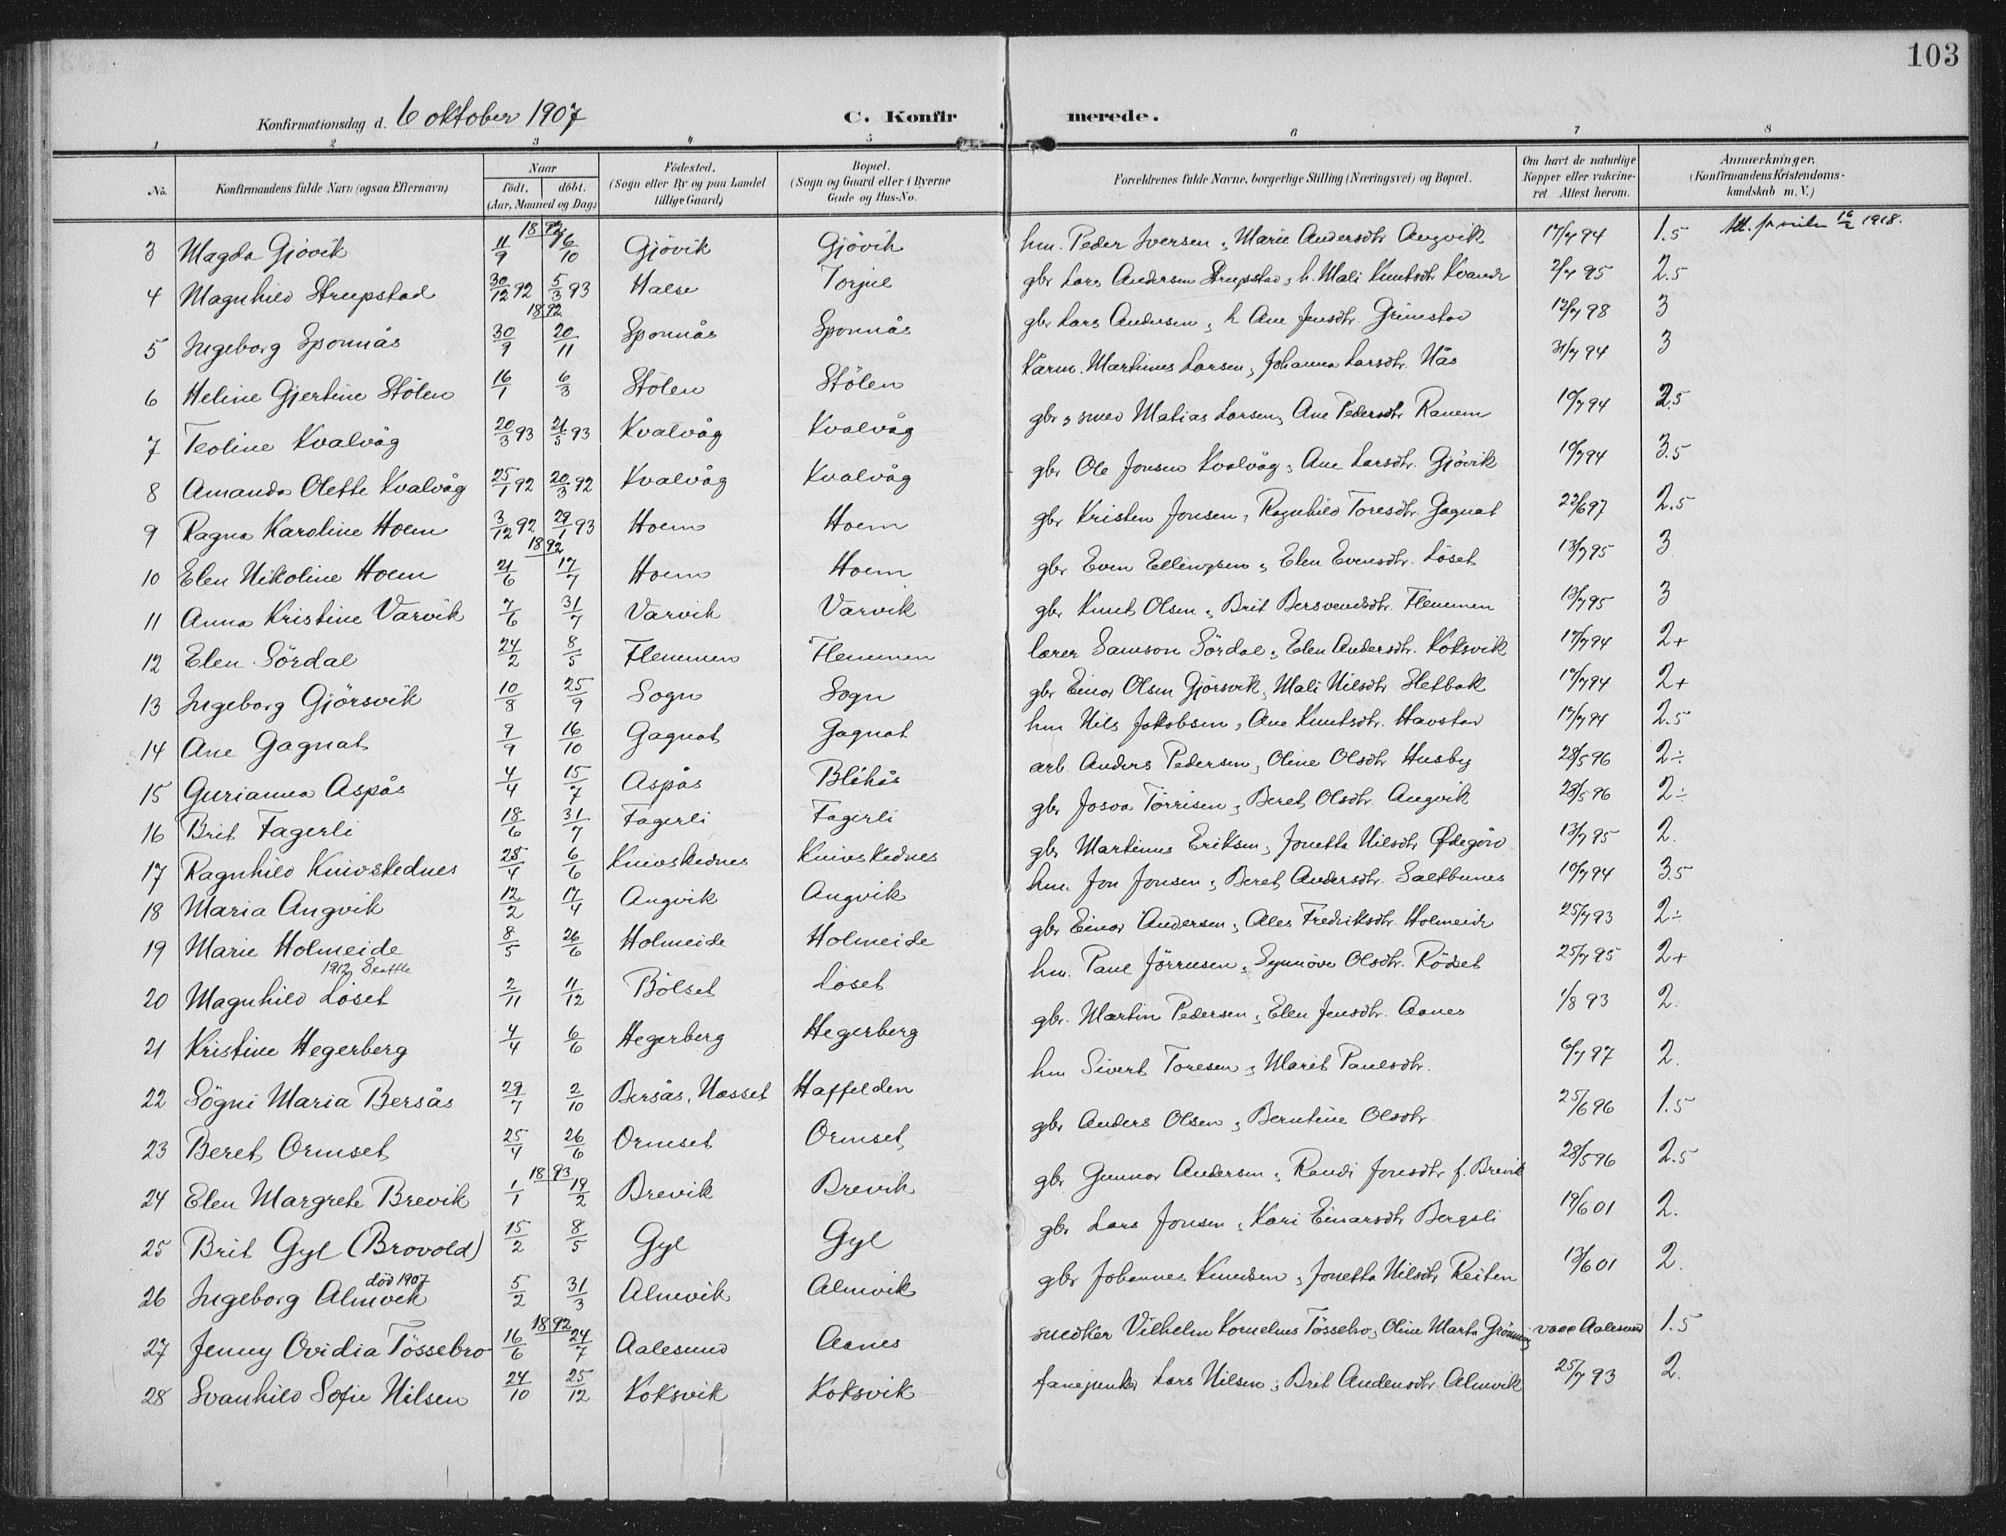 103
Konfirmationsdag d. 6 oktober 1907 C. Konfir merede.
1 2 3 4 5 6 7 8
No. Konfirmandens fulde Navn (ogsaa Efternavn) Naar født. døbt. (Aar, Maaned og Dag) Fødested. (Sogn eller By og paa Landet tillige Gaard) Bopæl. (Sogn og Gaard eller i Byerne Gade og Hus-No. Forældrenes fulde Navne, borgerlige Stilling (Næringsvei) og Bopæl. Om havt de naturlige Kopper eller vakcineret. Attest herom. Anmærkninger. (Konfirmandens Kristendomskundskab m. V.)
1892
3 Magda Gjövik 11/9 16/10 Gjövik Gjövik hm. Peder Iversen, Marie Andersdtr Angvik 17/7 94 1.5 16/2 1918.
4 Magnhild Strupstad 30/12 92 5/3 93 Halse Torjul gbr Lars Andersen Strupstad, h. Mali Knutsdtr Kvande 2/7 95 2.5
1892
5 Ingeborg Sponnås 30/9 20/11 Sponnås Sponnås gbr Lars Andersen, h Ane Jensdtr. Grimstad 12/7 98 3
6 Heline Gjertine Stölen 16/1 6/3 Stölen Stölen Kårm. Martinus Larsen, Johanna Larsdtr. Nås 31/7 94 3
7 Teoline Kvalvåg 20/3 93 21/5 93 Kvalvåg Kvalvåg gbr, smed Matias Larsen, Ane Pedersdtr Ranem 10/7 94 2.5
8 Amanda Olette Kvalvåg 25/1 92 20/3 92 Kvalvåg Kvalvåg gbr Ole Jonsen Kvalvåg, Ane Larsdtr. Gjövik 10/7 94 3.5
9 Ragna Karoline Hoem 3/12 92 29/1 93 Hoem Hoem gbr Kristen Jonsen, Ragnhild Toresdtr. Gagnat 22/6 97 2.5
1892
10 Elen Nikoline Hoem 21/6 17/7 Hoem Hoem gbr Even Ellingsen, Elen Evensdtr. Löset 13/7 95 3
11 Anna Kristine Varvik 7/6 31/7 Varvik Varvik gbr Knut Olsen, Brit Bersvendsdtr. Flemmen 13/7 95 3
12 Elen Sördal 24/2 8/5 Flemmen Flemmen lærer Samson Sördal, Elen Andersdtr. Koksvik 17/7 94 2+
13 Ingeborg Gjörsvik 10/8 25/9 Sogn Sogn gbr Einar Olsen Gjörsvik, Mali Nilsdtr Sletbak 17/7 94 2+
14 Ane Gagnat 9/9 16/10 Gagnat Gagnat hm Nils Jakobsen, Ane Knutsdtr. Havstad 17/7 94 2.5
15 Gurianna Aspås 4/4 15/7 Aspås Blåhås arb. Anders Pedersen, Oline Olsdtr Husby 28/5 96 2÷
16 Brit Fagerli 18/6 31/7 Fagerli Fagerli gbr Josva Törrisen, Beret Olsdtr. Angvik 28/5 96 2÷
17 Ragnhild Knivskednes 25/4 6/6 Knivskednes Knivskednes gbr Martinus Eriksen, Jonetta Nilsdtr Ødegård 13/7 95 2.
18 Maria Angvik 12/2 17/4 Angvik Angvik hm. Jon Jonsen, Beret Andersdtr. Saltbunes 10/7 94 3.5
19 Marie Holmeide 8/5 26/6 Holmeide Holmeide gbr Einar Andersen, Ales Fredriksdtr. Holmeide 25/7 93 2÷
1912 Seattle
20 Magnhild Löset 2/11 11/12 Bölset Löset hm. Paul Jörnsen, Synnöve Olsdtr. Rödset 25/7 95 2+
21 Kristine Hegerberg 4/4 6/6 Hegerberg Hegerberg gbr. Martin Pedersen, Elen Jensdtr. Aanes 1/8 93 2.
22 Sögni Maria Bersås 29/7 2/10 Bersås, Nesset Haffelden hm Sivert Toresen, Marit Paulsdtr. 6/7 97 2.
23 Beret Ormset 25/4 26/6 Ormset Ormset gbr Anders Olsen, Berntine Olsdtr. 25/6 96 1.5
1893
24 Elen Margrete Brevik 1/1 19/2 Brevik Brevik gbr Gunnar Andersen, Randi Jonsdtr f. Brevik 28/5 96 2.5
25 Brit Gyl (Brovold) 15/2 8/5 Gyl Gyl gbr Lars Jonsen, Kari Einarsdtr Bergsli 19/6 01 2.
död 1907
26 Ingeborg Almvik 5/2 31/3 Almvik Almvik gbr Johannes Knudsen, Jonetta Nilsdtr Reiten 13/6 01 2.
1892
27 Jenny Ovidia Tössebro 16/6 24/7 Aalesund Aanes snedker Vilhelm Kornelius Tössebro, Oline Marta vacc Aalesund 1.5
28 Svanhild Sofie Nilsen 24/10 25/12 Koksvik Koksvik fanejunker Lars Nilsen, Brit Andersdtr. Almvik 25/7 93 2.